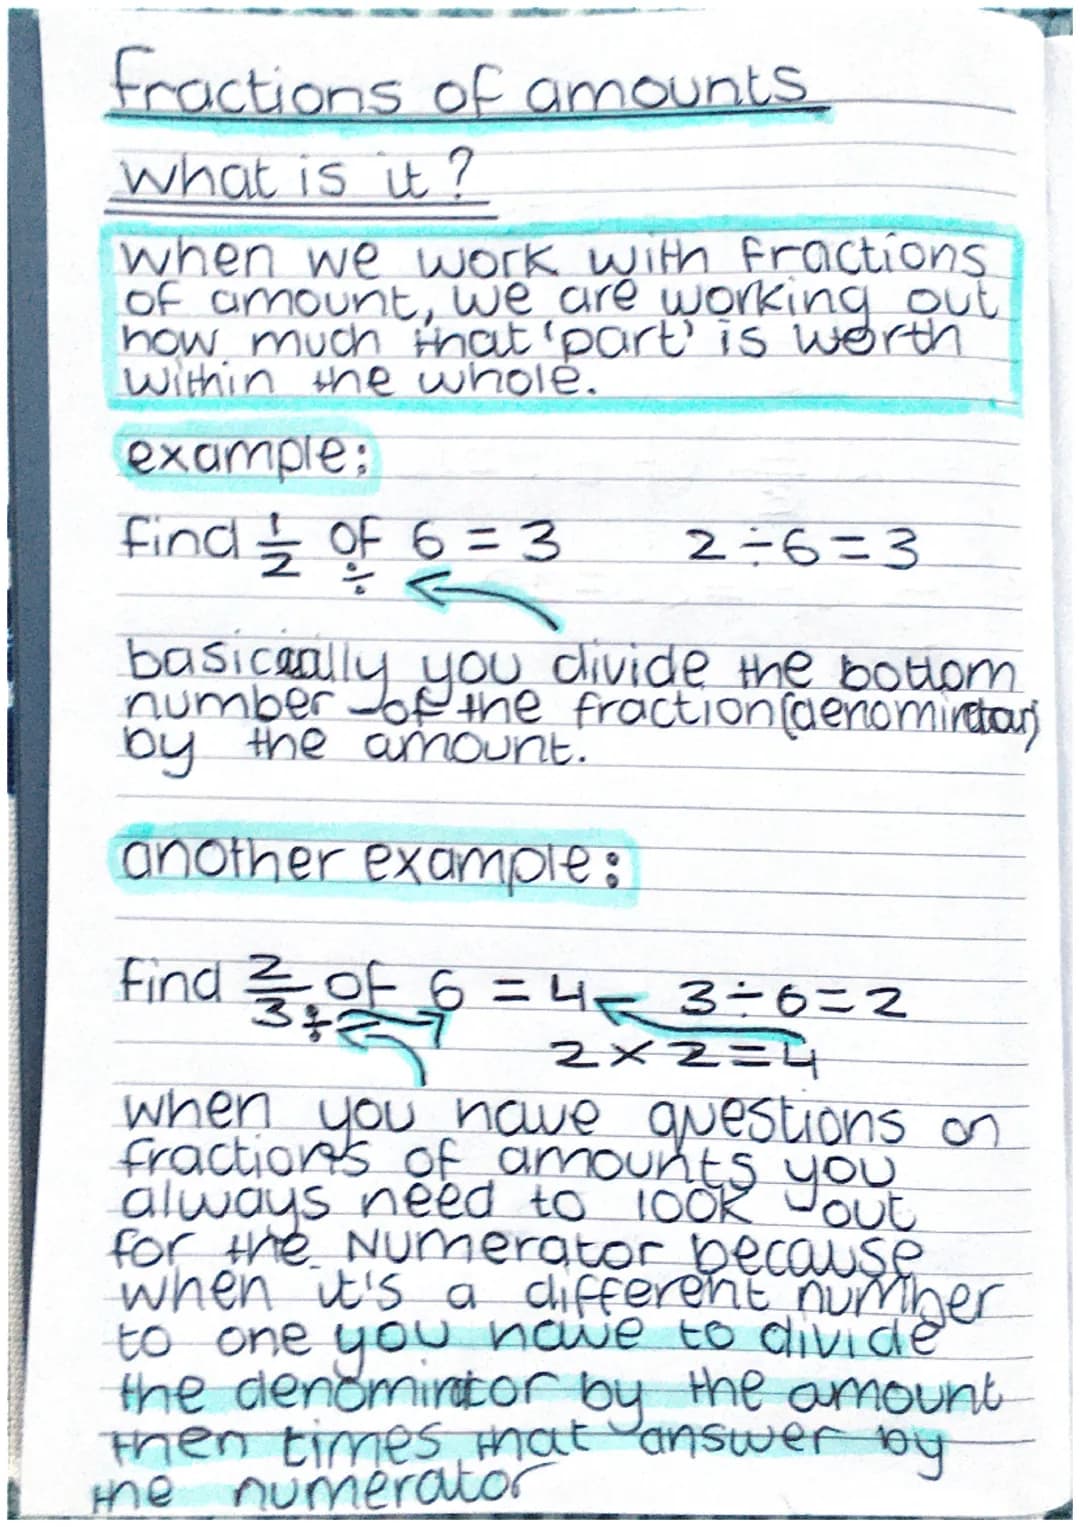 fractions of amounts
what is it?
when we work with fractions
of amount, we are working out
how much that 'part' is worth
within the whole.
example:
find 1/2 of 6 = 3 2÷6=3
÷
basically you divide the bottom
number of the fraction (denominator)
by the amount.
another example:
find 2/3 of 6 = 4 3÷6=2
÷ 2×2=4
when you have questions on
fractions of amounts you
always need to look out
for the Numerator because
when it's a different number
to one you have to divide
the denomintor by the amount
then times that answer by
the numerator